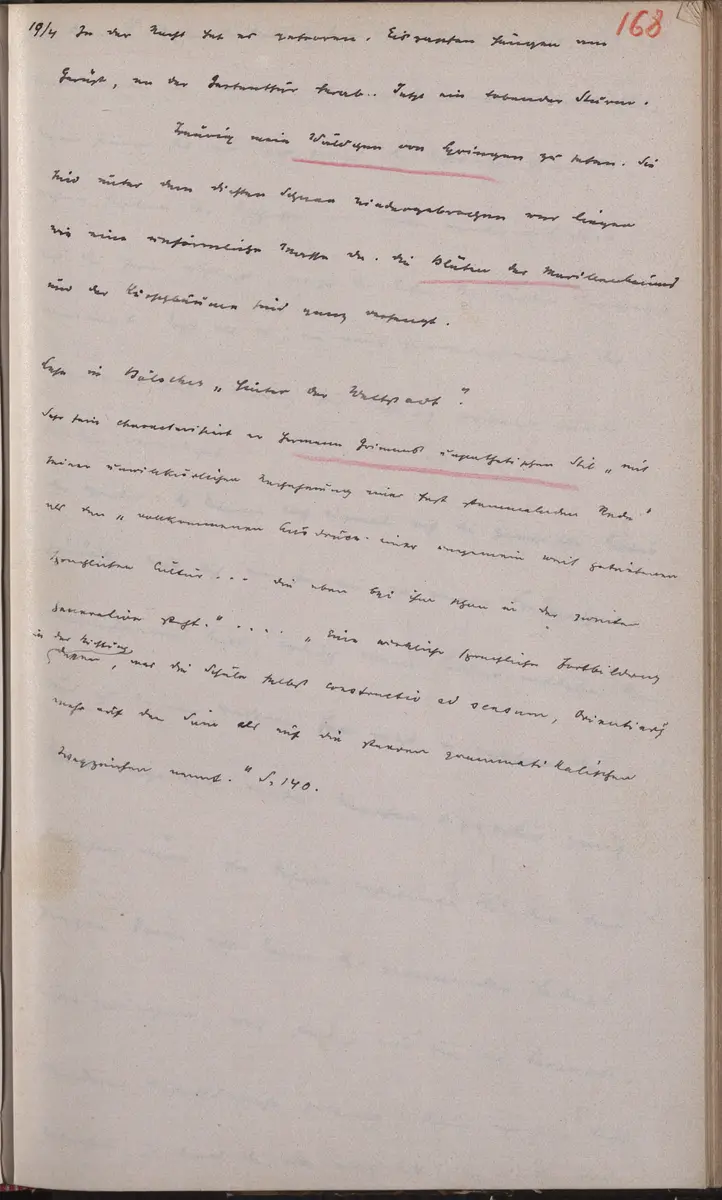 168
19/4 In der Nacht hat es gefroren. Eiszapfen hängen am
Gerüst, an der Gartentür herab.. Jetzt ein tobender Sturm.
Traurig mein Wäldchen von Syringen zu sehen. Sie
sind unter dem dichten Schnee niedergebrochen und liegen
wie eine unförmliche Masse da. Die Blüten der Marillenbäume
und der Kirschbäume sind ganz versengt.
Lese in Bölsches „Hinter der Weltstadt".
Sehr fein charakterisiert er Hermann Grimms unpathetischen Stil „mit
seiner unwillkürlichen Verehrung einer fast stammelnden Rede"
als den „vollkommenen Ausdruck einer ungemein weit getriebenen
sprachlichen Cultur... die eben bei ihm schon in der zweiten
Generation steht." .... „Eine wirkliche sprachliche Fortbildung
in der Richtung
dessen, was die Schule selbst constructio ad sensum, Orientierg
mehr auf den Sinn als auf die starren grammatikalischen
Wegzeichen nennt." S. 140.